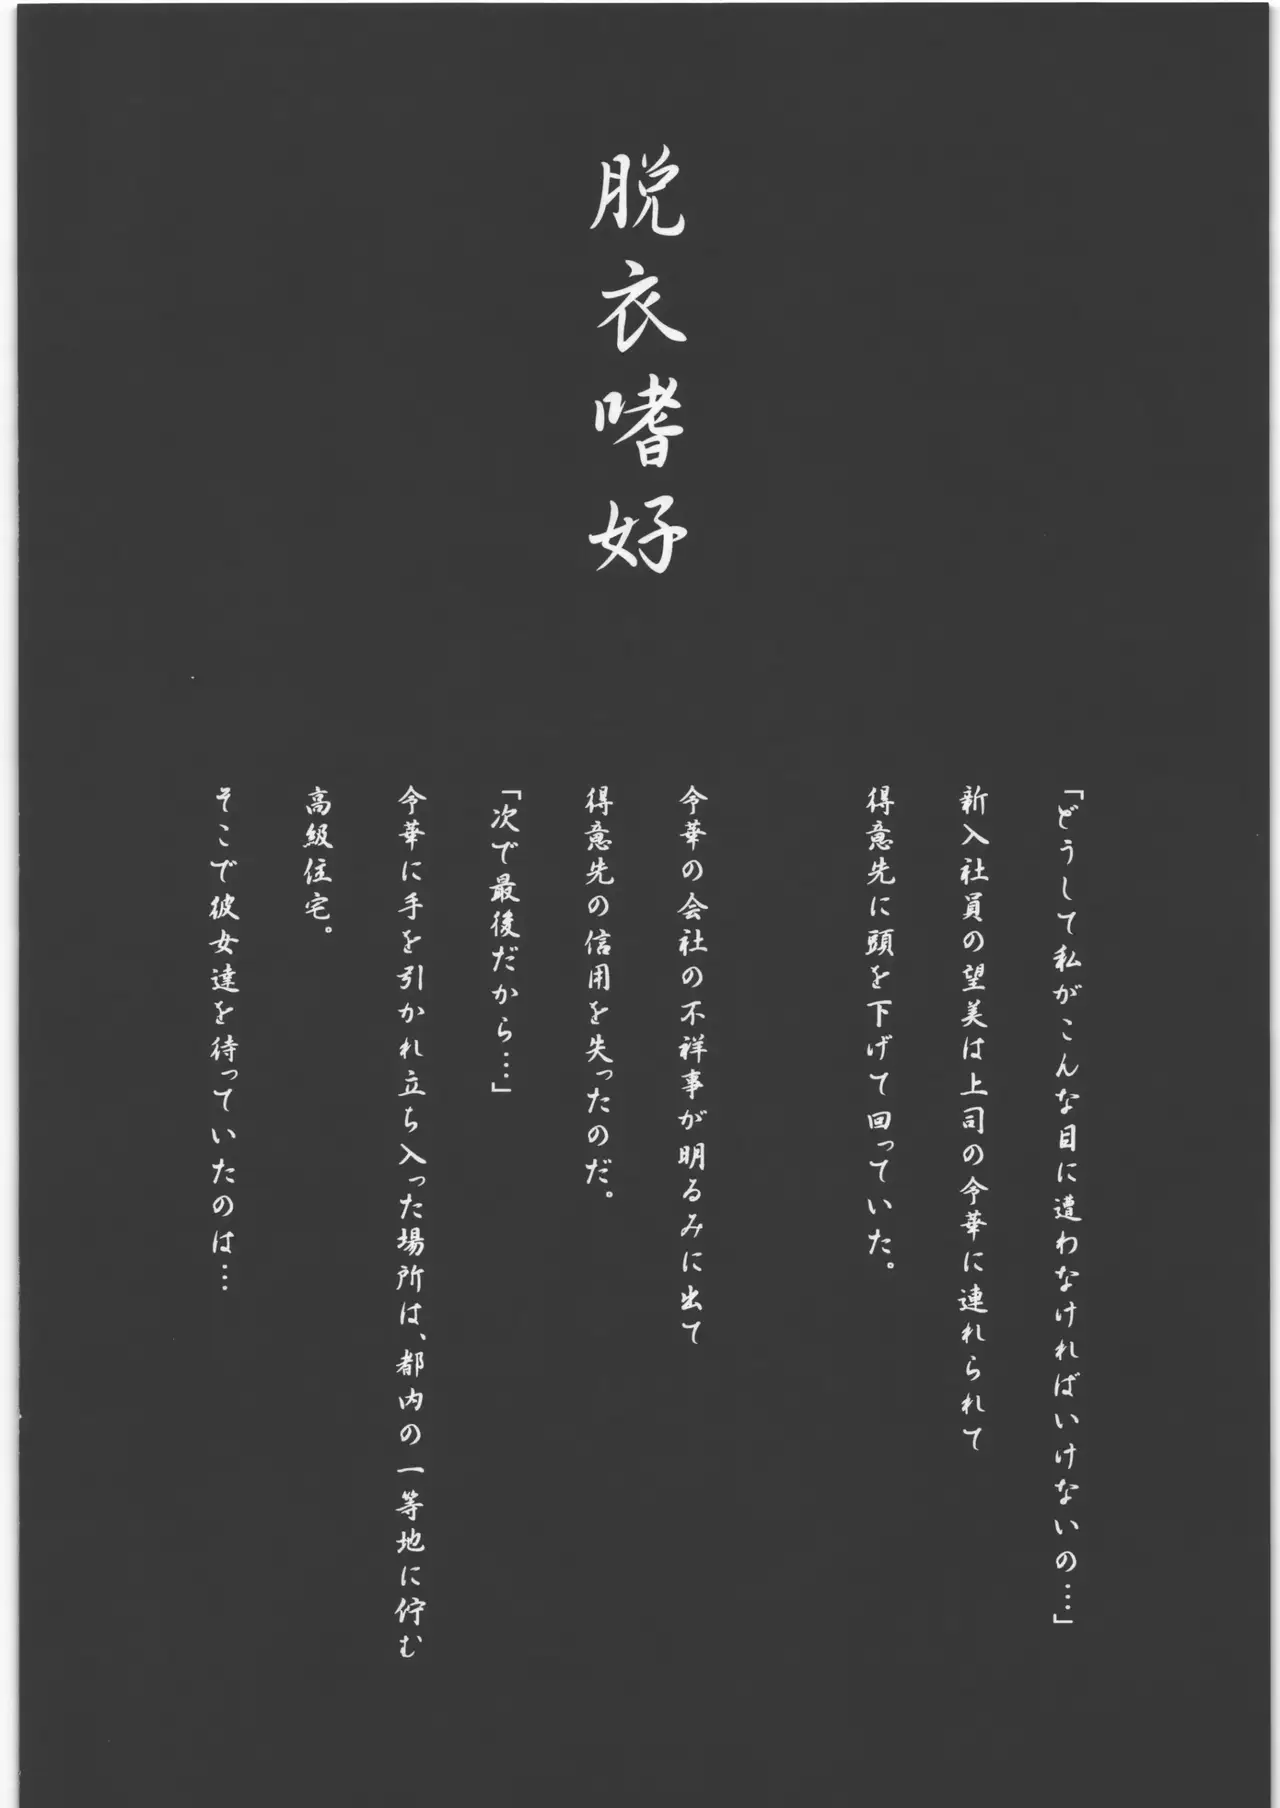 脱衣嗜好
「どうして私がこんな目に遭わなければいけないの…」
新入社員の望美は上司の令華に連れられて
得意先に頭を下げて回っていた。
令華の会社の不祥事が明るみに出て
得意先の信用を失ったのだ。
「次で最後だから…」
令華に手を引かれ立ち入った場所は、都内の一等地に佇む
高級住宅。
そこで彼女達を待っていたのは…